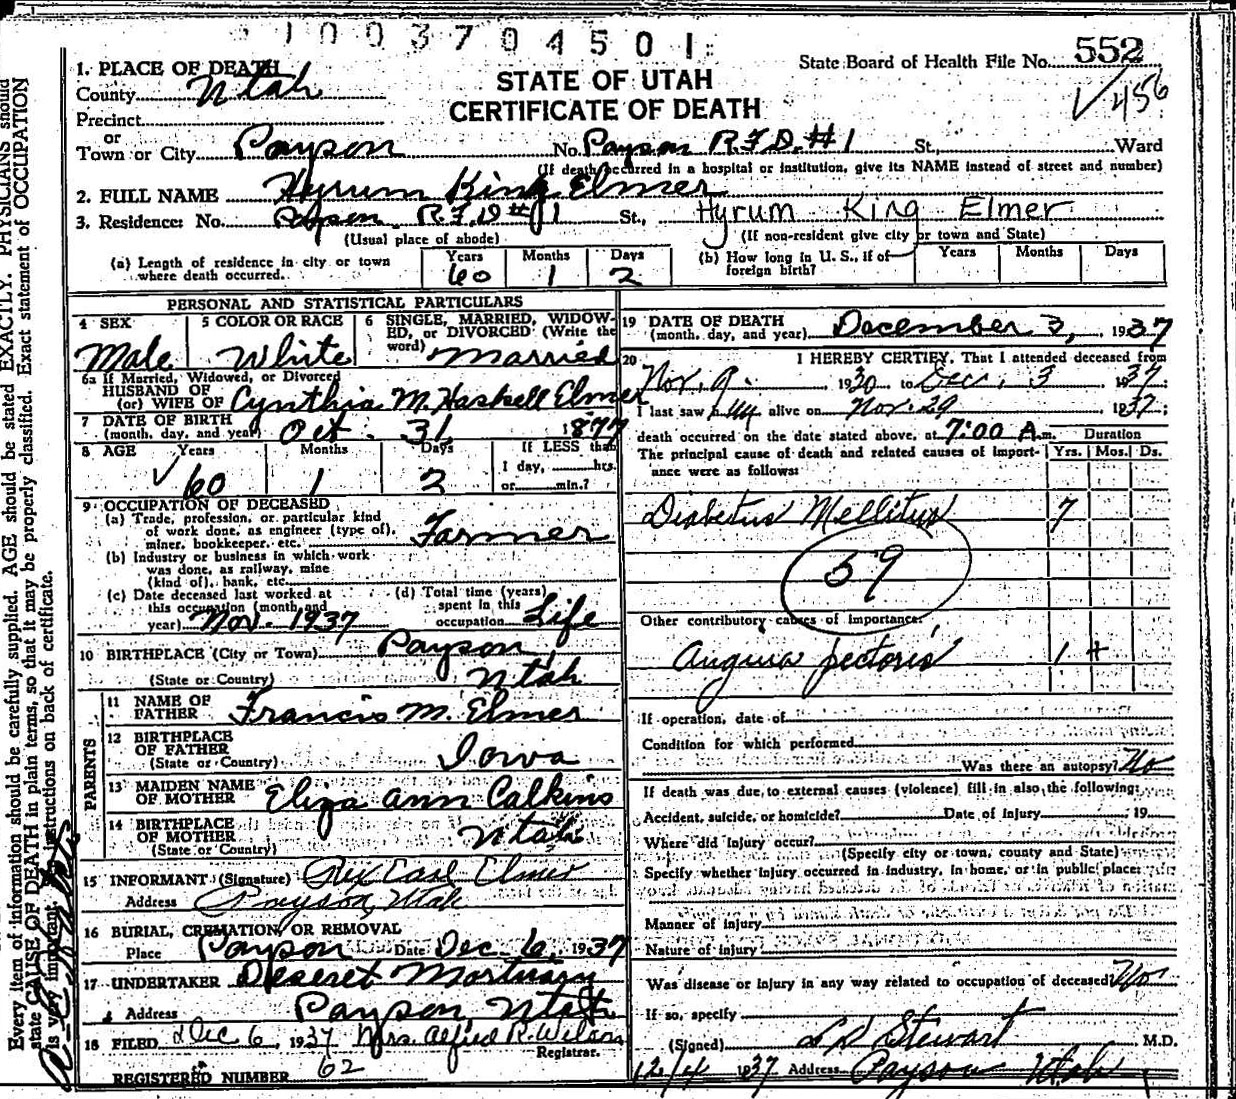 1003704501
State Board of Health File No. 552
1/456
STATE OF UTAH
CERTIFICATE OF DEATH
1. PLACE OF DEATH
County Utah
Precinct
or
Town or City Payson No. Payson R.F.D. #1 St., Ward
(If death occurred in a hospital or institution, give its NAME instead of street and number)
2. FULL NAME Hyrum King Elmer
3. Residence: No. Payson R.F.D #1 St., Hyrum King Elmer
(Usual place of abode) (If non-resident give city or town and State)
(a) Length of residence in city or town where death occurred. Years 60 Months 1 Days 2
(b) How long in U. S., if of foreign birth? Years Months Days
PERSONAL AND STATISTICAL PARTICULARS
4 SEX Male
5 COLOR OR RACE White
6 SINGLE, MARRIED, WIDOWED, or DIVORCED (Write the word) Married
6a If Married, Widowed, or Divorced
HUSBAND OF
(or) WIFE OF Cynthia M. Haskell Elmer
7 DATE OF BIRTH
(month, day, and year) Oct. 31 1877
8 AGE Years 60 Months 1 Days 2 If LESS than
1 day, hrs.
or min.?
9 OCCUPATION OF DECEASED
(a) Trade, profession, or particular kind
of work done, as engineer (type of),
miner, bookkeeper, etc. Farmer
(b) Industry or business in which work
was done, as railway, mine
(kind of), bank, etc.
(c) Date deceased last worked at
this occupation (month and
year) Nov. 1937
(d) Total time (years)
spent in this
occupation Life
10 BIRTHPLACE (City or Town) Payson
(State or Country) Utah
PARENTS
11 NAME OF
FATHER Francis M. Elmer
12 BIRTHPLACE
OF FATHER
(State or Country) Iowa
13 MAIDEN NAME
OF MOTHER Eliza Ann Calkins
14 BIRTHPLACE
OF MOTHER
(State or Country) Utah
15 INFORMANT (Signature) Rex Earl Elmer
Address Payson, Utah
16 BURIAL, CREMATION, OR REMOVAL
Place Payson Date Dec 6, 1937
17 UNDERTAKER Deseret Mortuary
Address Payson, Utah
18 FILED Dec 6, 1937 Mrs. Alfred R. Wilson
Registrar.
REGISTERED NUMBER 62
19 DATE OF DEATH
(month, day, and year) December 3, 1937
20 I HEREBY CERTIFY, That I attended deceased from
Nov. 9 1930 to Dec. 3 1937;
I last saw him alive on Nov. 29 1937;
death occurred on the date stated above, at 7:00 A.m.
Duration
The principal cause of death and related causes of importance were as follows: Yrs. Mos. Ds.
Diabetus Mellitus 7
59
Other contributory causes of importance:
Angina pectoris 1 +
If operation, date of
Condition for which performed
Was there an autopsy? No
If death was due to external causes (violence) fill in also the following:
Accident, suicide, or homicide? Date of injury 19
Where did injury occur?
(Specify city or town, county and State)
Specify whether injury occurred in industry, in home, or in public place:
Manner of injury
Nature of injury
Was disease or injury in any way related to occupation of deceased? No
If so, specify
(Signed) L D Stewart, M.D.
12/4 1937 Address Payson Utah
Every item of information should be carefully supplied. AGE should be stated EXACTLY. PHYSICIANS should
state CAUSE OF DEATH in plain terms, so that it may be properly classified. Exact statement of OCCUPATION
is very important. instructions on back of certificate.